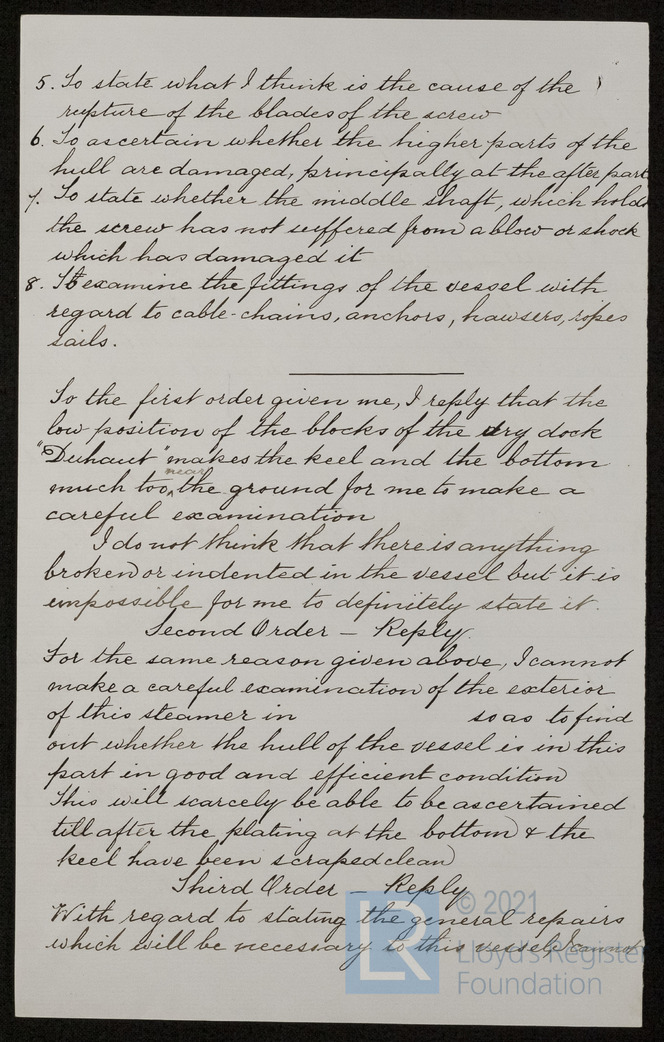 5. To state what I think is the cause of the
rupture of the blades of the screw
6. To ascertain whether the higher parts of the
hull are damaged, principally at the after part
7. To state whether the middle shaft, which holds
the screw has not suffered from a blow or shock
which has damaged it
8. To examine the fittings of the vessel with
regard to cable-chains, anchors, hawsers, ropes
sails.
To the first order given me, I reply that the
low position of the blocks of the dry dock
"Duhaut" makes the keel and the bottom
near
much too the ground for me to make a
careful examination
I do not think that there is anything
broken or indented in the vessel but it is
impossible for me to definitely state it.
Second Order - Reply.
For the same reason given above, I cannot
make a careful examination of the exterior
of this steamer in so as to find
out whether the hull of the vessel is in this
part in good and efficient condition
This will scarcely be able to be ascertained
till after the plating at the bottom & the
keel have been scraped clean
Third Order - Reply
With regard to stating the general repairs
which will be necessary to this vessel I cannot
© 2021
Lloyd's Register
Foundation
LR